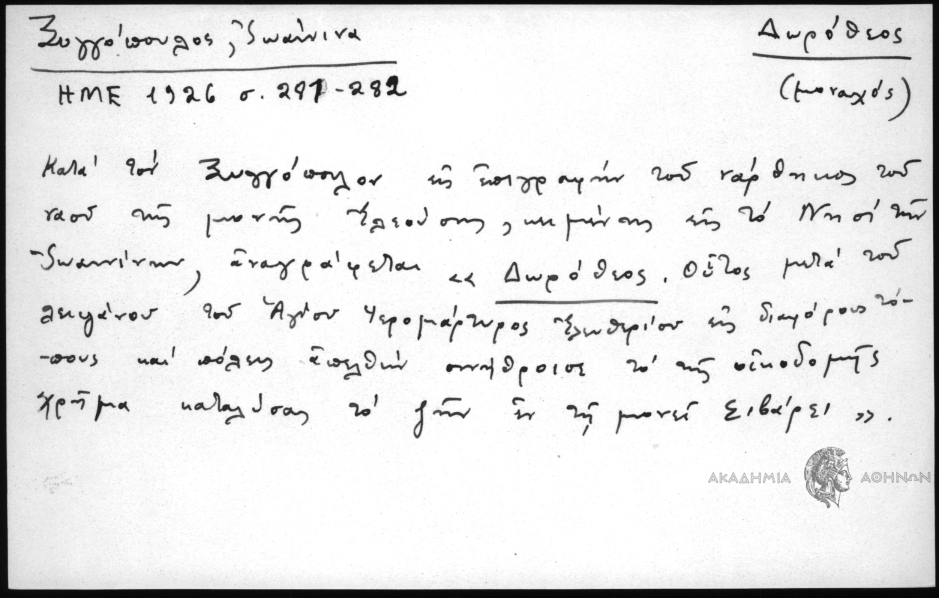 Ξυγγόπουλος, Ἰωάννινα
Δωρόθεος
ΗΜΕ 1926 σ. 281-282
(μοναχός)
Κατά τόν Ξυγγόπουλον εἰς ἐπιγραφήν τοῦ νάρθηκος τοῦ
ναοῦ τῆς μονῆς Ἐλεούσης, κειμένης εἰς τό Νησί τῶν
Ἰωαννίνων, ἀναγράφεται «Δωρόθεος. Οὗτος μετά τοῦ
λειψάνου τοῦ Ἁγίου Ἱερομάρτυρος Ἐλευθερίου εἰς διαφόρους τό-
-πους καί πόλεις ἀπελθών συνήθροισε τό τῆς οἰκοδομῆς
χρῆμα καταλύσας τό ζῆν ἐν τῇ μονεῖ Σιβάρει».
ΑΚΑΔΗΜΙΑ ΑΘΗΝΩΝ